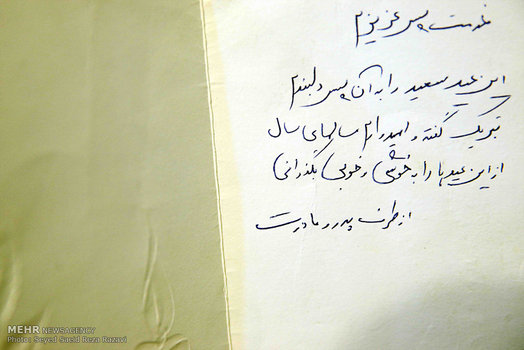 خدمت پسر عزیزم
این عید سعید را به آن پسر دلبندم
تبریک گفته و امیدوارم سالهای سال
از این عیدها را به خوشی و خوبی بگذرانی
از طرف پدر و مادرت
MEHR NEWSAGENCY
Photo: Seyed Saeid Reza Razavi